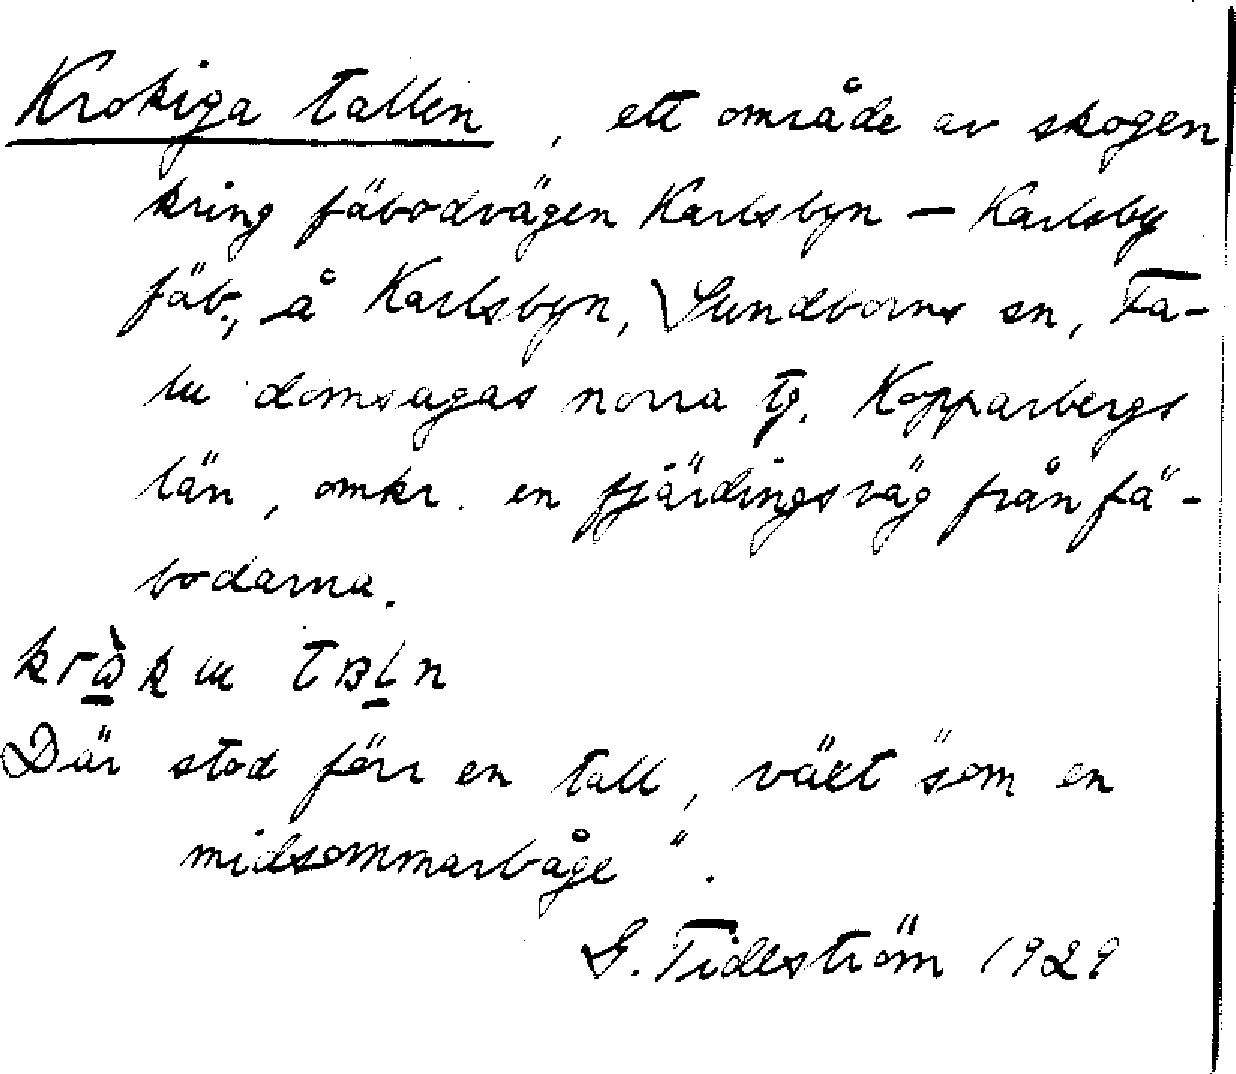 Krokiga tallen, ett område av skogen
kring fäbodvägen Karlsbyn – Karlsby
fäb., å Karlsbyn, Sundborns sn, Fa-
lu domsagas norra tg. Kopparbergs
län, omkr. en fjärdingsväg från fä-
bodarna.
Där stod förr en tall, växt "som en
midsommarbåge".
G. Tideström 1929